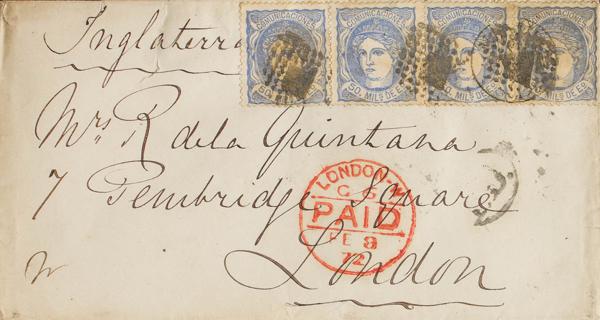 COMUNICACIONES COMUNICACIONES COMUNICACIONES COMUNICACIONES
50. MILS DE Eo. 50. MILS DE Eo. 50. MILS DE Eo. 50. MILS DE Eo.
Inglaterra
Mrs R de la Quintana
7 Pembridge Square
London
LONDON
PAID
FE 8
72